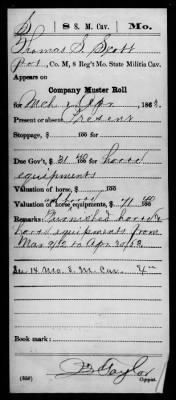 S | 8 S. M. Cav. | Mo.
Thomas S. Scott
Pvt, Co. M, 8 Reg't Mo. State Militia Cav.
Appears on
Company Muster Roll
for Mch & Apr, 1863.
Present or absent Present
Stoppage, $ 100 for
Due Gov't, $ 31 40/100 for horse
equipments
Valuation of horse, $ 100
Valuation of horse equipments, $ 71 40/100
Remarks: Furnished horse &
horse equipments from
Mar 9/62 to Apr 30/63
See 14 Mo. S. M. Cav.
Book mark:
Taylor
(358) Copyist.